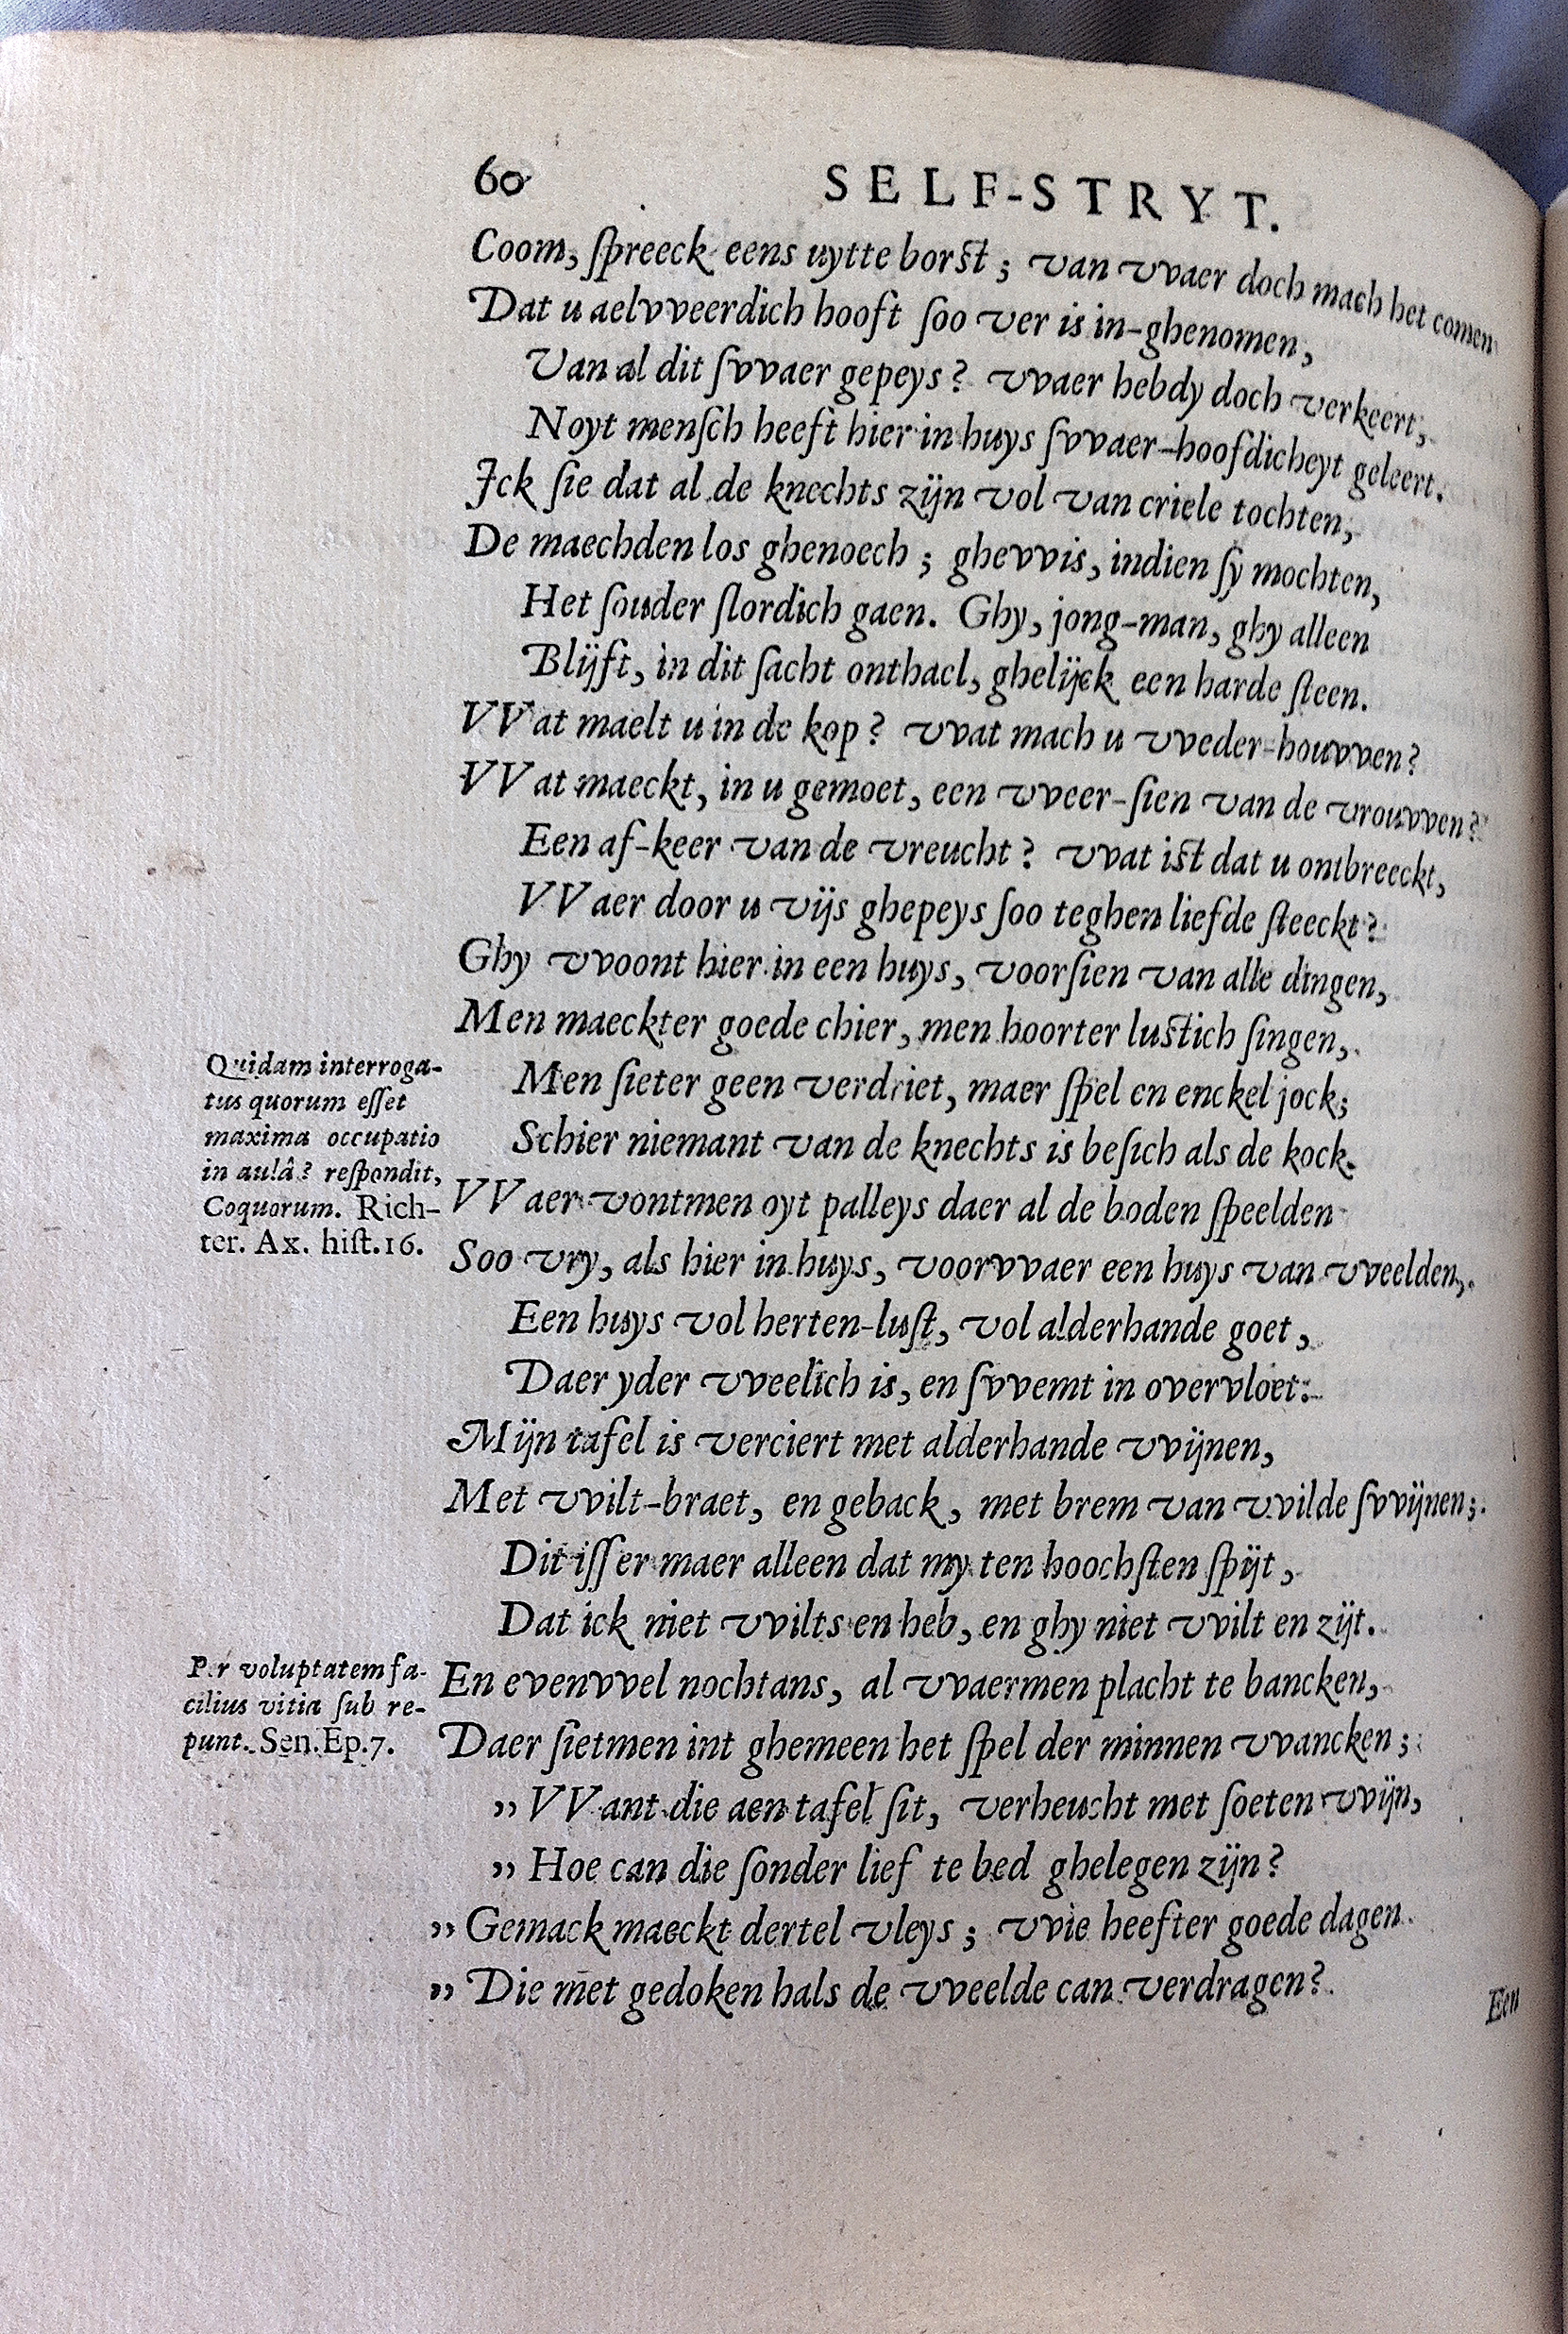 60 SELF-STRYT.
Coom, ſpreeck eens uytte borſt; van vvaer doch mach het comen
Dat u aelvveerdich hooft ſoo ver is in-ghenomen,
Van al dit ſvvaer gepeys? vvaer hebdy doch verkeert,
Noyt menſch heeft hier in huys ſvvaer-hoofdicheyt geleert.
Ick ſie dat al de knechts zijn vol van criele tochten,
De maechden los ghenoech; ghevvis, indien ſy mochten,
Het ſouder ſlordich gaen. Ghy, jong-man, ghy alleen
Blijft, in dit ſacht onthael, ghelijck een harde ſteen.
VVat maelt u in de kop? vvat mach u vveder-houvven?
VVat maeckt, in u gemoet, een vveer-ſien van de vrouvven?
Een af-keer van de vreucht? vvat iſt dat u ontbreeckt,
VVaer door u vijs ghepeys ſoo teghen liefde ſteeckt?
Ghy vvoont hier in een huys, voorſien van alle dingen,
Men maeckter goede chier, men hoorter luſtich ſingen,
Men ſieter geen verdriet, maer ſpel en enckel jock;
Schier niemant van de knechts is beſich als de kock.
VVaer vontmen oyt palleys daer al de boden ſpeelden
Soo vry, als hier in huys, voorvvaer een huys van vveelden,
Een huys vol herten-luſt, vol alderhande goet,
Daer yder vveelich is, en ſvvemt in overvloet:
Mijn tafel is verciert met alderhande vvijnen,
Met vvilt-braet, en geback, met brem van vvilde ſvvijnen;
Dit iſſer maer alleen dat my ten hoochſten ſpijt,
Dat ick niet vvilts en heb, en ghy niet vvilt en zijt.
En evenvvel nochtans, al vvaermen placht te bancken,
Daer ſietmen int ghemeen het ſpel der minnen vvancken;
„ VVant die aen tafel ſit, verheucht met ſoeten vvijn,
„ Hoe can die ſonder lief te bed ghelegen zijn?
„ Gemack maeckt dertel vleys; vvie heefter goede dagen
„ Die met gedoken hals de vveelde can verdragen?
Een
Quidam interroga-
tus quorum eſſet
maxima occupatio
in aulâ? reſpondit,
Coquorum. Rich-
ter. Ax. hiſt. 16.
Per voluptatem fa-
cilius vitia ſub re-
punt. Sen. Ep. 7.